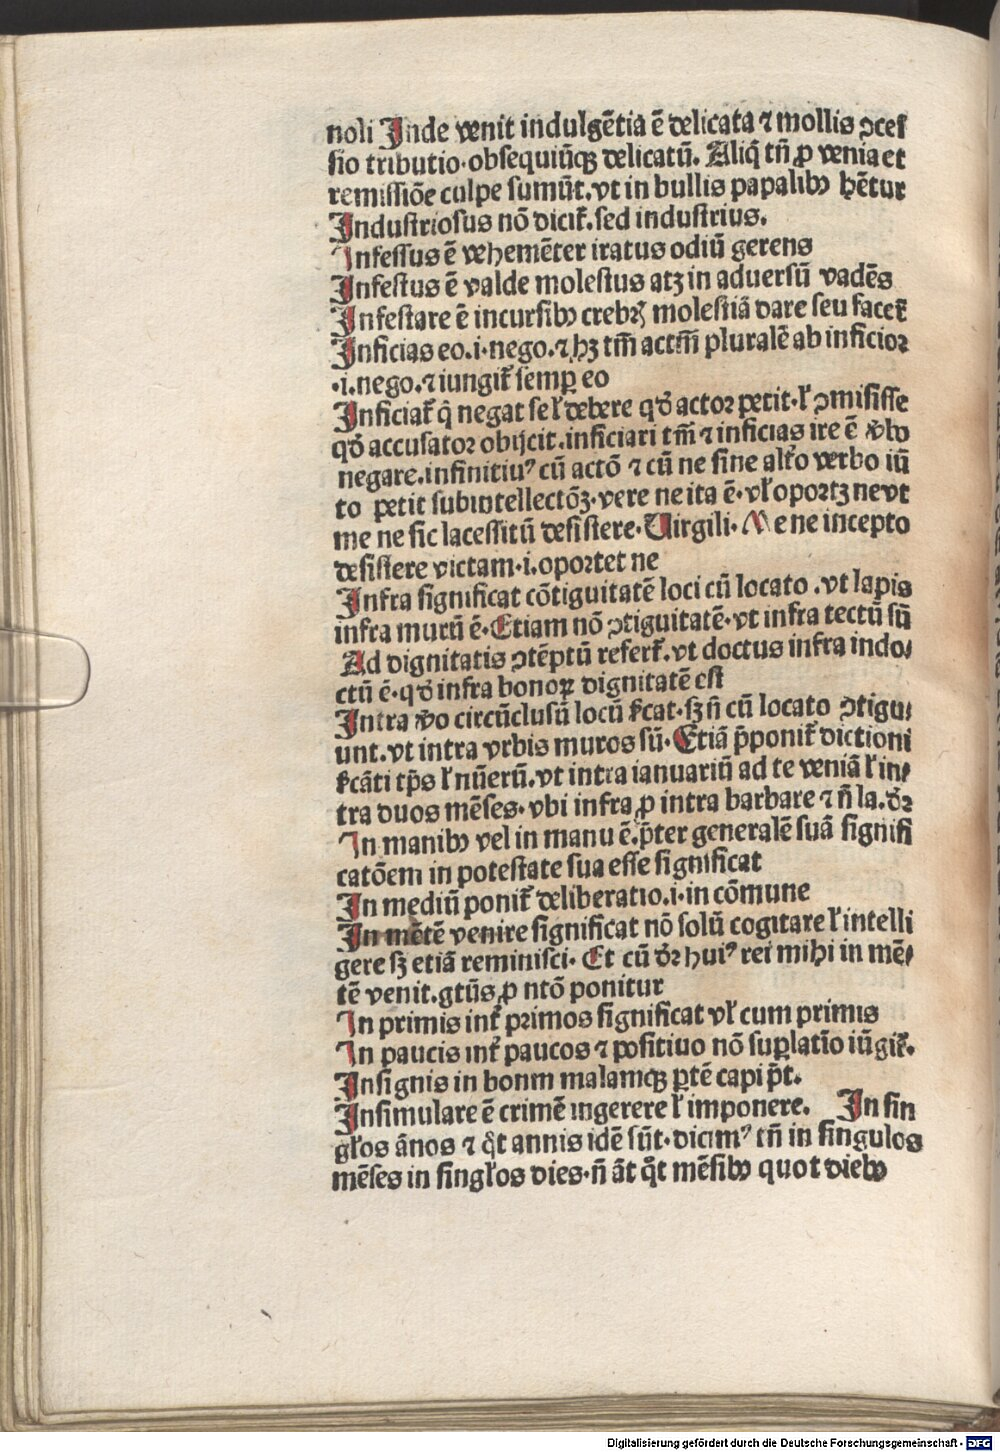 noli Inde venit indulgētia ē delicata ⁊ mollis ↄceſ
ſio tributio· obſequiūqꝫ delicatū. Aliq̄ tn̄ ꝓ venia et
remiſſiōe culpe ſumūt. vt in bullis papalibꝰ hētur
Induſtrioſus nō dicit᷑. ſed induſtrius.
Infeſſus ē vehemēter iratus odiū gerens
Infeſtus ē valde moleſtus atꝫ in aduerſū vadēs
Infeſtare ē incurſibꝰ crebꝝ moleſtiā dare ſeu facet᷑
Inficias eo. i· nego. ⁊ hꝫ tm̄ actm̄ pluralē ab inficior
·i. nego. ⁊ iungit᷑ ſemꝑ eo
Inficiat᷑ q̄ negat ſe ł debere qd̓ actor petit· ł ꝓmiſiſſe
qd̓ accuſator obijcit. inficiari tm̄ ⁊ inficias ire ē v̓bo
negare. infinitiuꝰ cū actō ⁊ cū ne ſine alt᷑o verbo iū
to petit ſubintellectōꝫ· vere ne ita ē· vł oportꝫ ne vt
me ne ſic laceſſitū deſiſtere· Uirgili· Me ne incepto
deſiſtere victam· i. oportet ne
Infra ſignificat cōtiguitatē loci cū locato . vt lapis
infra murū ē· Etiam nō ↄtiguitatē· vt infra tectū ſū
Ad dignitatis ↄtēptū refert᷑. vt doctus infra indo⸗
ctū ē· qd̓ infra bonoꝝ dignitatē eſt
Intra v̓o circūcluſū locū ſ̓cat· ſꝫ n̄ cū locato ↄtigu⸗
unt. vt intra vrbis muros ſū· Etiā p̄ponit᷑ dictioni
ſ̓cāti tp̄s ł nūerū. vt intra ianuariū ad te veniā ł in⸗
tra duos mēſes· vbi infra ꝓ intra barbare ⁊ n̄ la. dr̄
In manibꝰ vel in manu ē. p̄ter generalē ſuā ſignifi
catōem in poteſtate ſua eſſe ſignificat
In mediū ponit᷑ deliberatio. i· in cōmune
In mētē venire ſignificat nō ſolū cogitare ł intelli
gere ſꝫ etiā reminiſci· Et cū dr̄ huiꝰ rei mihi in mē⸗
tē venit. gtūs ꝓ ntō ponitur
In primis int᷑ primos ſignificat vł cum primis
In paucis int᷑ paucos ⁊ poſitiuo nō ſuꝑlatio iūgit᷑.
Inſignis in bonm malamqꝫ ꝑtē capi p̄t.
Inſimulare ē crimē ingerere ł imponere. In ſin
głos ānos ⁊ qͦt annis idē ſūt· dicimꝰ tn̄ in ſingulos
mēſes in ſingłos dies· n̄ āt qͦt mēſibꝰ quot diebꝰ
Digitalisierung gefördert durch die Deutsche Forschungsgemeinschaft - DFG